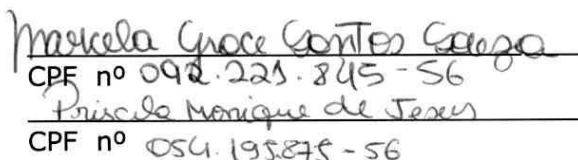 Marcela Grace Santos Souza
CPF nº 092.221.845-56
Priscila Monique de Jesus
CPF nº 054.195.875-56